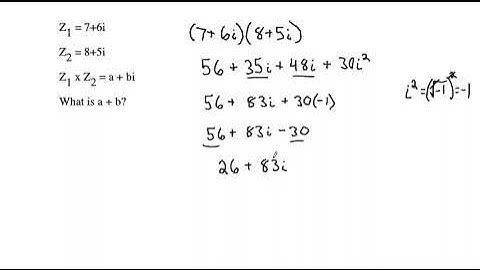 Z₁ = 7+6i
Z₂ = 8+5i
Z₁ x Z₂ = a + bi
What is a + b?
(7+6i)(8+5i)
56 + 35i + 48i + 30i²
56 + 83i + 30(-1)
i² = (√-1)² = -1
56 + 83i - 30
26 + 83i